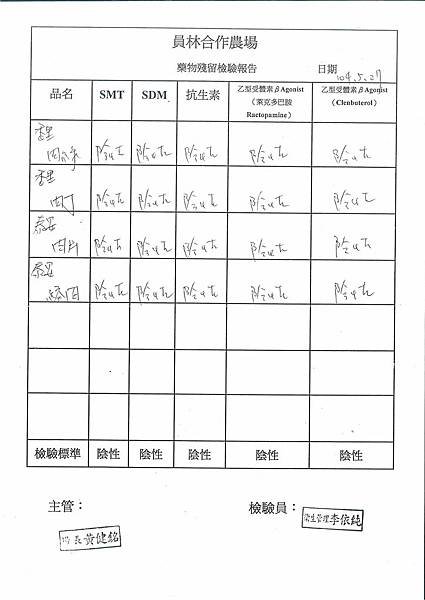 員林合作農場
藥物殘留檢驗報告
日期 104.5.27
品名 SMT SDM 抗生素 乙型受體素βAgonist (萊克多巴胺 Ractopamine) 乙型受體素βAgonist (Clenbuterol)
肉絲 陰性 陰性 陰性 陰性 陰性
肉丁 陰性 陰性 陰性 陰性 陰性
泰安 肉片 陰性 陰性 陰性 陰性 陰性
泰安 絞肉 陰性 陰性 陰性 陰性 陰性
檢驗標準 陰性 陰性 陰性 陰性 陰性
主管： 檢驗員：
衛生管理李依純
場長黃健銘